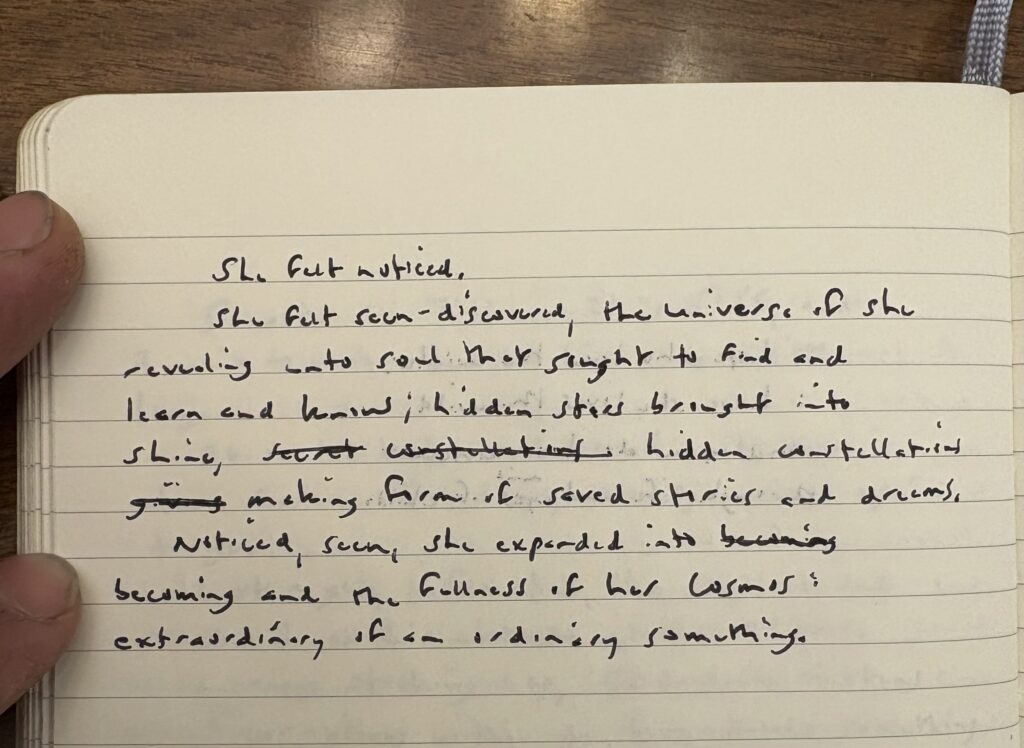 She felt noticed.
She felt seen-discovered, the universe of she
revealing unto soul that sought to find and
learn and know; hidden stars brought into
shine, secret constellations. hidden constellations
giving making form of saved stories and dreams.
Noticed, seen, she expanded into becoming
becoming and the fullness of her cosmos:
extraordinary of an ordinary something.